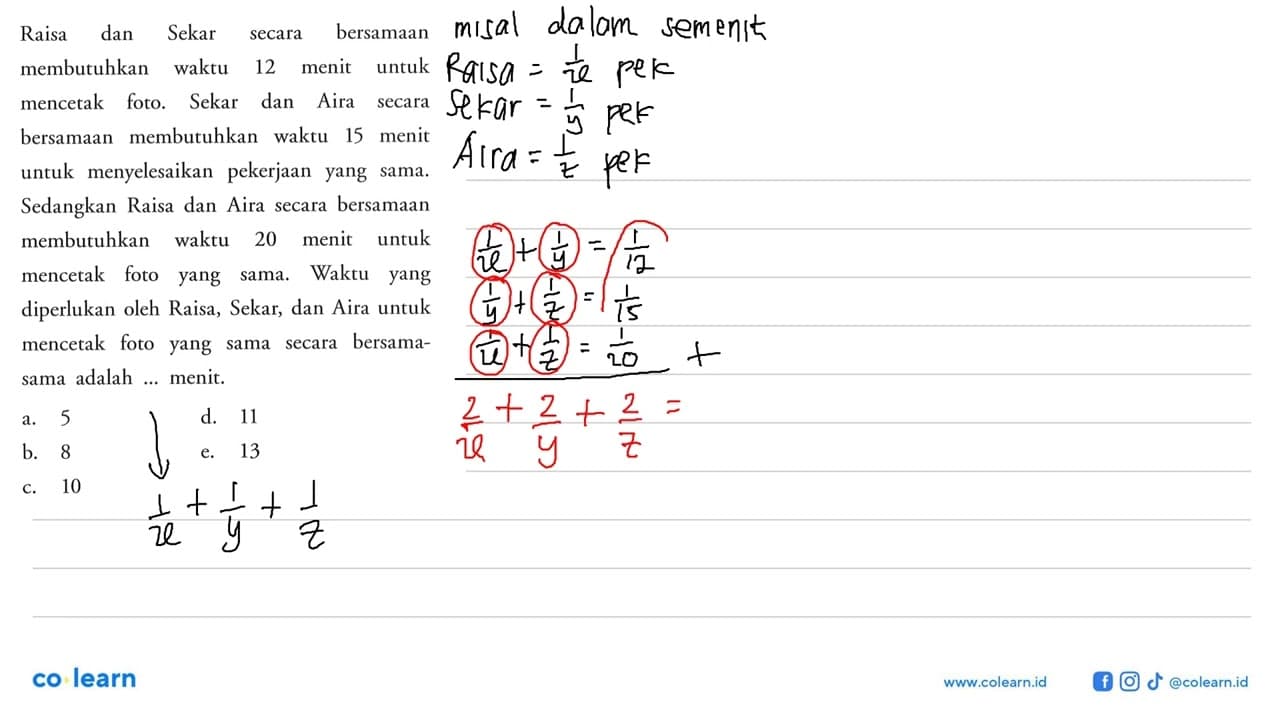 Raisa dan Sekar secara bersamaan
membutuhkan waktu 12 menit untuk
mencetak foto. Sekar dan Aira secara
bersamaan membutuhkan waktu 15 menit
untuk menyelesaikan pekerjaan yang sama.
Sedangkan Raisa dan Aira secara bersamaan
membutuhkan waktu 20 menit untuk
mencetak foto yang sama. Waktu yang
diperlukan oleh Raisa, Sekar, dan Aira untuk
mencetak foto yang sama secara bersama-
sama adalah ... menit.
a. 5 d. 11
b. 8 e. 13
c. 10
1/x + 1/y + 1/z
misal dalam semenit
Raisa = 1/x pek
Sekar = 1/y pek
Aira = 1/z pek
1/x + 1/y = 1/12
1/y + 1/z = 1/15
1/x + 1/z = 1/20 +
2/x + 2/y + 2/z =
co learn
www.colearn.id
@colearn.id